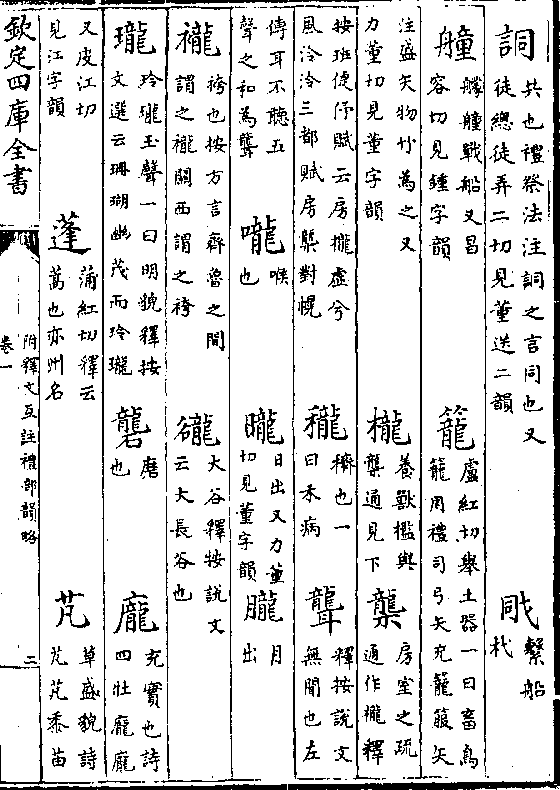 詷共也禮祭法注詷之言同也又
徒總徒弄二切見董送二韻
戙繫船
杙
艟艨艟戰船又昌
容切見鍾字韻
籠盧紅切舉土器一曰畜鳥
籠周禮司弓矢充籠箙矢
注盛矢物竹為之又
力董切見董字韻
櫳養獸檻與
㰍通見下
㰍房室之疏
通作櫳釋
按班倢伃賦云房櫳虛兮
風泠泠三都賦房㰍對幌
䆍穄也一
曰禾病
聾釋按說文
無聞也左
傳耳不聽五
聲之和為聾
嚨喉
也
曨日出又力董
切見董字韻
朧月
出
襱袴也按方言齊魯之間
謂之襱關西謂之袴
豅大谷釋按說文
云大長谷也
瓏玲瓏玉聲一曰明貌釋按
文選云珊瑚幽茂而玲瓏
礱磨
也
龐充實也詩
四牡龐龐
又皮江切
見江字韻
蓬蒲紅切釋云
蒿也亦州名
芃草盛貌詩
芃芃黍苗
欽定四庫全書
附釋文互註禮部韻略
卷一
三